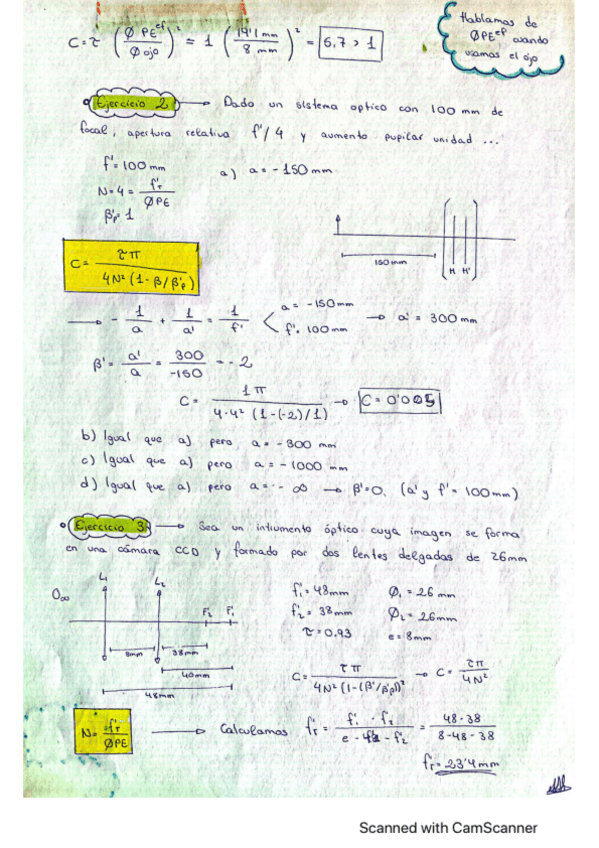 C = τ (Ø PE^ef / Ø ojo)² = 1 (14'1 mm / 8 mm)² = 6,7 > 1
Hablamos de
ØPE^ef cuando
usamos el ojo
Ejercicio 2 → Dado un sistema optico con 100 mm de
focal, apertura relativa f'/4 y aumento pupilar unidad ...
f' = 100 mm
a) a = -150 mm
N = 4 = f'T / ØPE
β'p = 1
150 mm
H H'
C = τπ / 4N² (1 - β/β'p)
→ - 1/a + 1/a' = 1/f' < a = -150 mm
f' = 100 mm → a' = 300 mm
β' = a'/a = 300/-150 = -2
C = 1π / 4·4² (1-(-2)/1) → C = 0'005
b) Igual que a) pero a = -300 mm
c) Igual que a) pero a = -1000 mm
d) Igual que a) pero a = -∞ → β'=0. (a' y f' = 100mm)
Ejercicio 3 → Sea un intrumento óptico cuya imagen se forma
en una cámara CCD y formado por dos lentes delgadas de 26mm
L1
L2
O∞
F'2 F'1
8mm 38mm
40mm
48mm
f'1 = 48mm Ø1 = 26 mm
f'2 = 38mm Ø2 = 26mm
τ = 0.93 e = 8mm
C = τπ / 4N² (1-(β'/β'p))² → C = τπ / 4N²
N = f'T / ØPE → Calculamos f'T = - f'1 · f'2 / e - f'1 - f'2 = - 48·38 / 8-48-38
f'T = 23'4 mm
Scanned with CamScanner